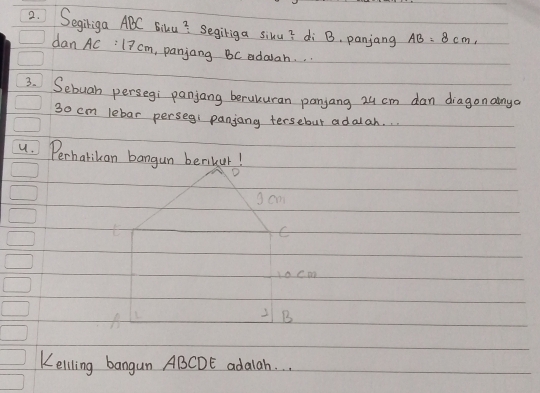 2. Segitiga ABC siku² segitiga siku² di B. panjang AB = 8 cm,
dan AC : 17 cm, panjang BC adalah...
3. Sebuah persegi panjang berukuran panjang 24 cm dan diagonalnya
30 cm lebar persegi panjang tersebut adalah...
4. Perhatikan bangun berikut!
D
9 cm
E C
10 cm
A B
Keliling bangun ABCDE adalah...